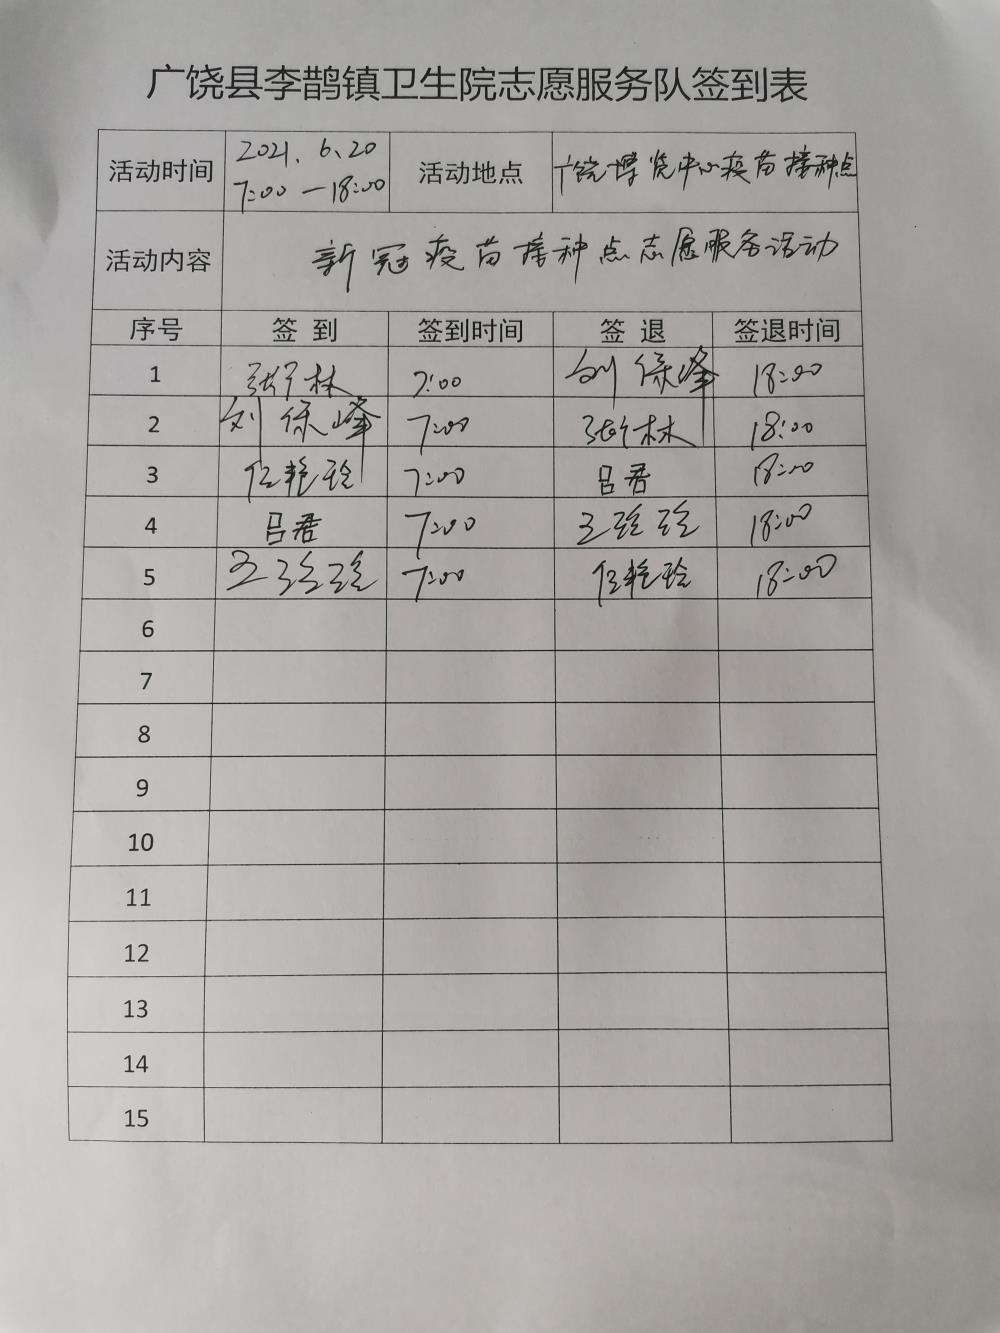 广饶县李鹊镇卫生院志愿服务队签到表
活动时间 2021.6.20 7:00—18:00 活动地点 广饶博览中心疫苗接种点
活动内容 新冠疫苗接种点志愿服务活动
序号 签到 签到时间 签退 签退时间
1 7:00 刘保峰 18:00
2 刘保峰 7:00 18:00
3 任艳玲 7:00 吕君 18:00
4 吕君 7:00 王玲玲 18:00
5 王玲玲 7:00 任艳玲 18:00
6
7
8
9
10
11
12
13
14
15